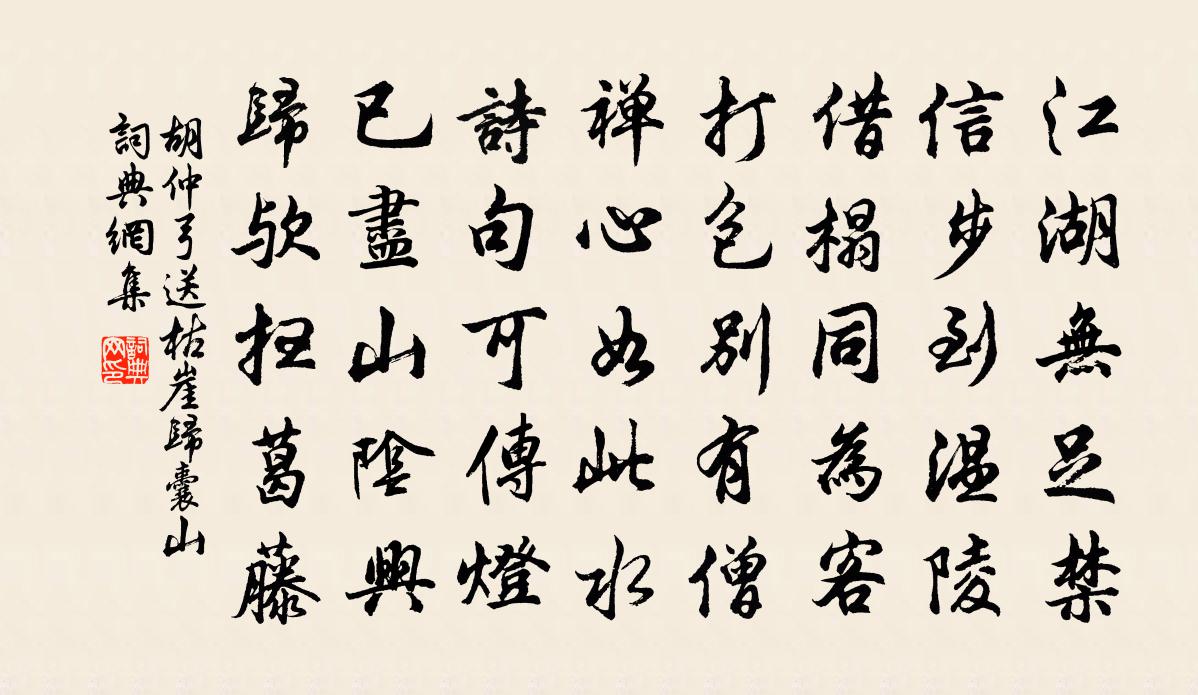 江湖無足禁
信步到溫陵
借榻同為客
打包別有僧
禪心如此水
詩句可傳燈
已盡山陰興
歸歟掃葛藤
胡仲弓送枯崖歸囊山
詞典網集
詞典网印